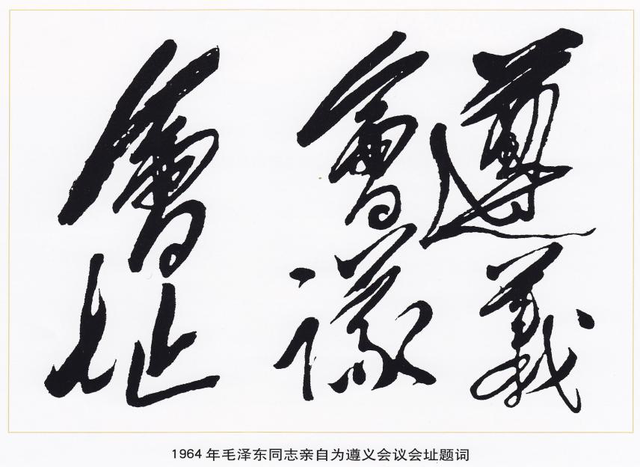 遵義
會議
會址
1964年毛泽东同志亲自为遵义会议会址题词